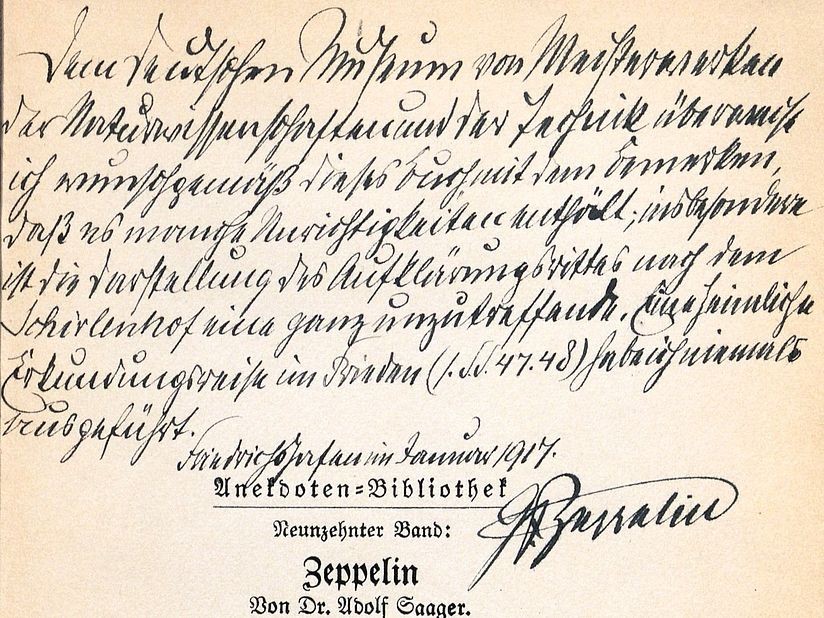 Dem Deutschen Museum von Meisterwerken
der Naturwissenschaften und der Technik überweise
ich wunschgemäß dieses Buch mit dem Bemerken,
daß es manche Unrichtigkeiten enthält; insbesondere
ist die Darstellung des Aufklärungsrittes nach dem
Schirlenhof eine ganz unzutreffende. Eine heimliche
Erkundungsreise im Frieden (s. S.S. 47.48) habe ich niemals
ausgeführt.
Friedrichshafen im Januar 1917.
Anekdoten-Bibliothek
Gf. Zeppelin
Neunzehnter Band:
Zeppelin
Von Dr. Adolf Saager.